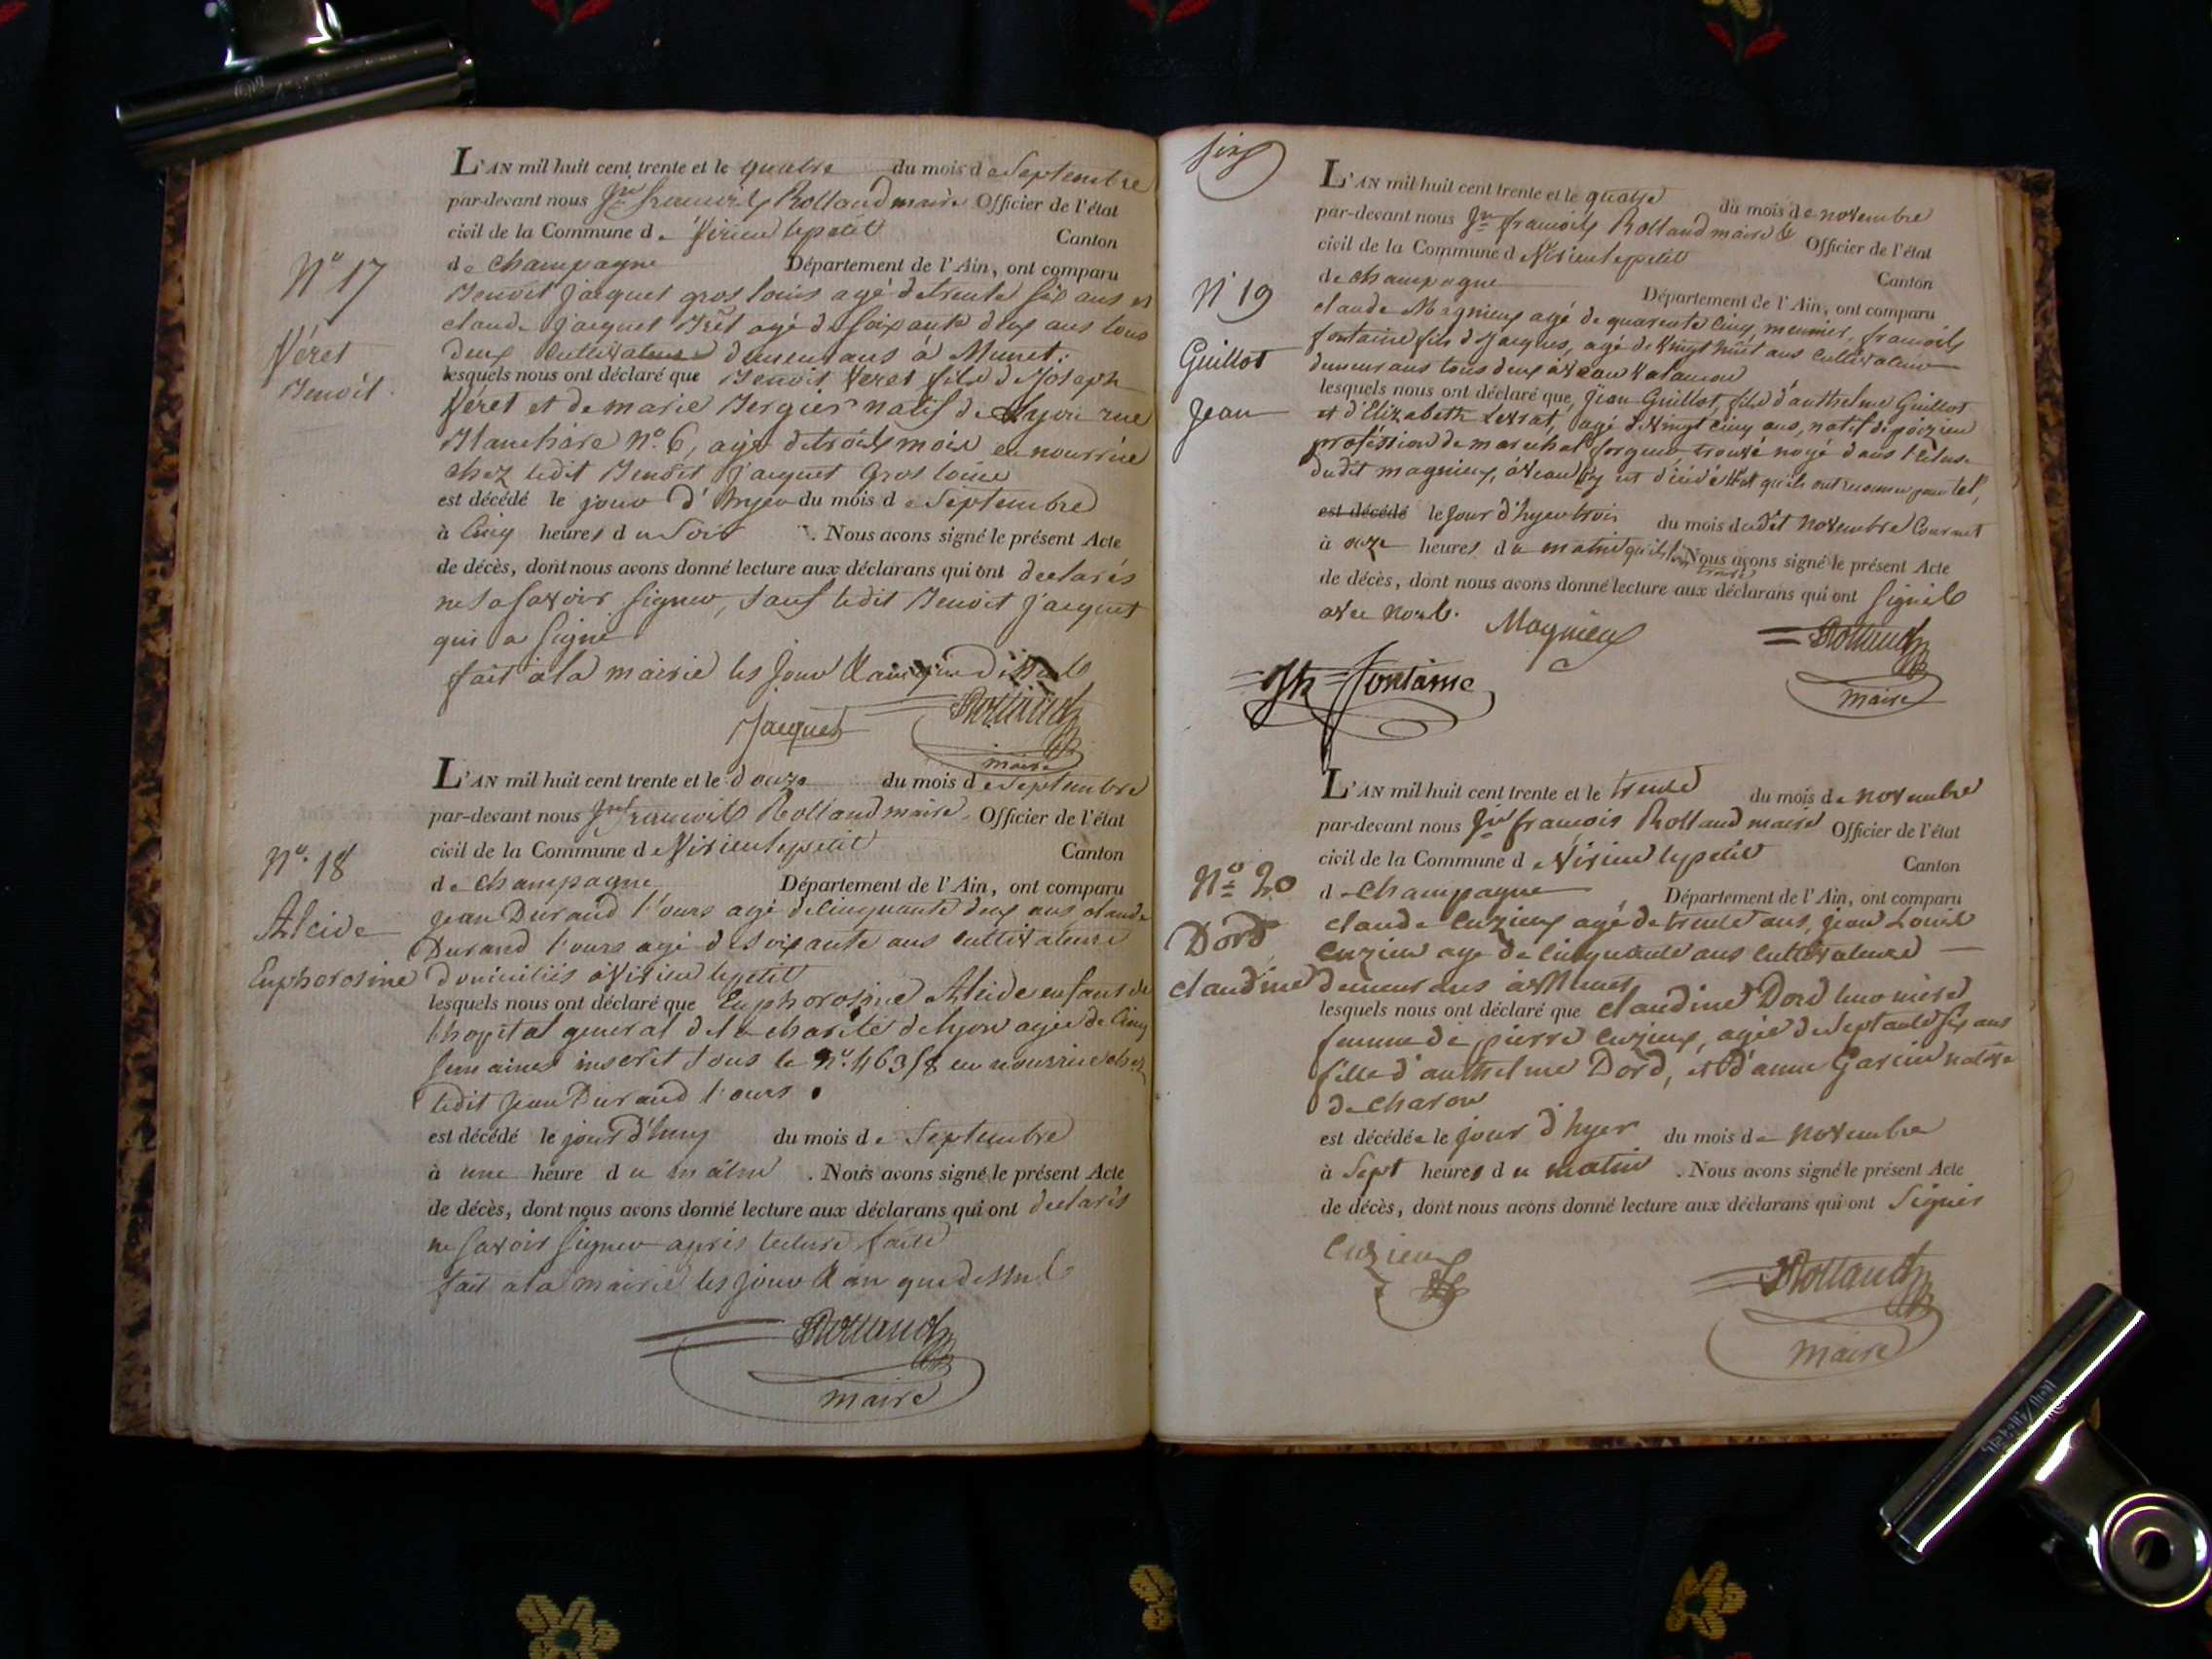 L'AN mil huit cent trente et le quatre du mois de Septembre
par-devant nous Jn françois Rolland maire Officier de l'état
civil de la Commune de Virieu lepetit Canton
de champagne Département de l'Ain, ont comparu
N° 17
Benoit jacquet gros louis agé de trente six ans et
claude jacquet agé de soixante deux ans tous
Véret
deux cultivateurs demeurans à Munet.
Benoit.
lesquels nous ont déclaré que Benoit Veret fils de Joseph
Véret et de marie Bergier natif de Lyon rue
Blanchère N°. 6, agé de trois mois en nourrice
chez ledit Benoit jacquet Gros louis
est décédé le jour d'hyer du mois de Septembre
à Cinq heures du Soir . Nous avons signé le présent Acte
de décès, dont nous avons donné lecture aux déclarans qui ont declarés
ne Savoir signer, Sauf ledit Benoit jacquet
qui a Signé
fait à la mairie les jour & an que dessus
Jacquet Rolland
maire
L'AN mil huit cent trente et le douze du mois de Septembre
par-devant nous Jn françois Rolland maire Officier de l'état
civil de la Commune de Virieu lepetit Canton
N°. 18
de champagne Département de l'Ain, ont comparu
jean Durand l'ours agé de cinquante deux ans claude
Alcide
Durand l'ours agé de soixante ans cultivateurs
Euphorosine
domiciliés à Virieu lepetit
lesquels nous ont déclaré que Euphorosine Alcide enfant de
l'hopital general de la charité de lyon agée de Cinq
semaines inscrit sous le N°. 46358 en nourrice chez
ledit jean Durand l'ours
est décédé le jour d'huy du mois de Septembre
à une heure du matin . Nous avons signé le présent Acte
de décès, dont nous avons donné lecture aux déclarans qui ont declarés
ne savoir signer après lecture faite
fait a la mairie les jour & an que dessus
Rolland
maire
six
L'AN mil huit cent trente et le quatre du mois de novembre
par-devant nous Jn françois Rolland maire Officier de l'état
civil de la Commune de Virieu lepetit Canton
de champagne Département de l'Ain, ont comparu
N 19
claude Magnieux agé de quarente cinq, meunier, françois
fontaine fils de Jacques, agé de vingt huit ans cultivateur
Guillot
demeurans tous deux à
Jean
lesquels nous ont déclaré que, Jean Guillot, fils d'anthelme Guillot
et d'Elizabeth Levrat, agé de vingt cinq ans, natif de poizieu
proféssion de marechal forgeur, trouvé noyé dans l'écluse
dudit magnieux, qu'ils ont reconnu pour tel,
est décédé le jour d'hyer trois du mois dudit novembre Courant
à onze heures du matin qu'ils l'on trouvé Nous avons signé le présent Acte
de décès, dont nous avons donné lecture aux déclarans qui ont signés
avec nous. Magnieux Rolland
fontaine maire
L'AN mil huit cent trente et le trente du mois de novembre
par-devant nous Jn françois Rolland maire Officier de l'état
civil de la Commune de Virieu lepetit Canton
N° 20
de Champagne Département de l'Ain, ont comparu
Dord
claude Cuzieux agé de trente ans, jean Louis
cuzieu agé de cinquante ans cultivateurs
claudine
demeurans à Munet
lesquels nous ont déclaré que claudine Dord
femme de pierre Cuzieux, agée de Septante six ans
fille d'anthelme Dord, et d'anne Garin native
de charon
est décédée le jour d'hyer du mois de novembre
à Sept heures du matin . Nous avons signé le présent Acte
de décès, dont nous avons donné lecture aux déclarans qui ont Signés
Cuzieux Rolland
maire